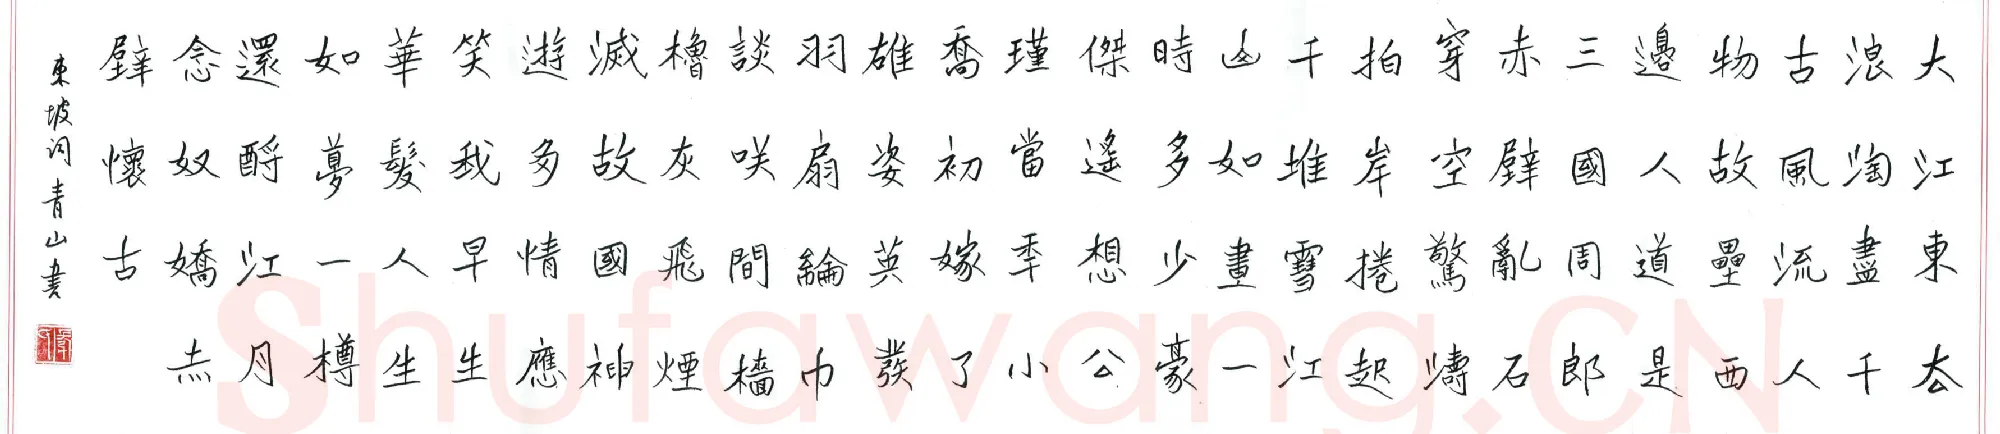 大江東去
浪淘盡千
古風流人
物故壘西
邊人道是
三國周郎
赤壁亂石
穿空驚濤
拍岸捲起
千堆雪江
山如畫一
時多少豪
傑遙想公
瑾當年小
喬初嫁了
雄姿英發
羽扇綸巾
談咲間檣
櫓灰飛煙
滅故國神
遊多情應
笑我早生
華髮人生
如夢一樽
還酹江月
念奴嬌赤
壁懷古
東坡词青山書
Shufawang.CN